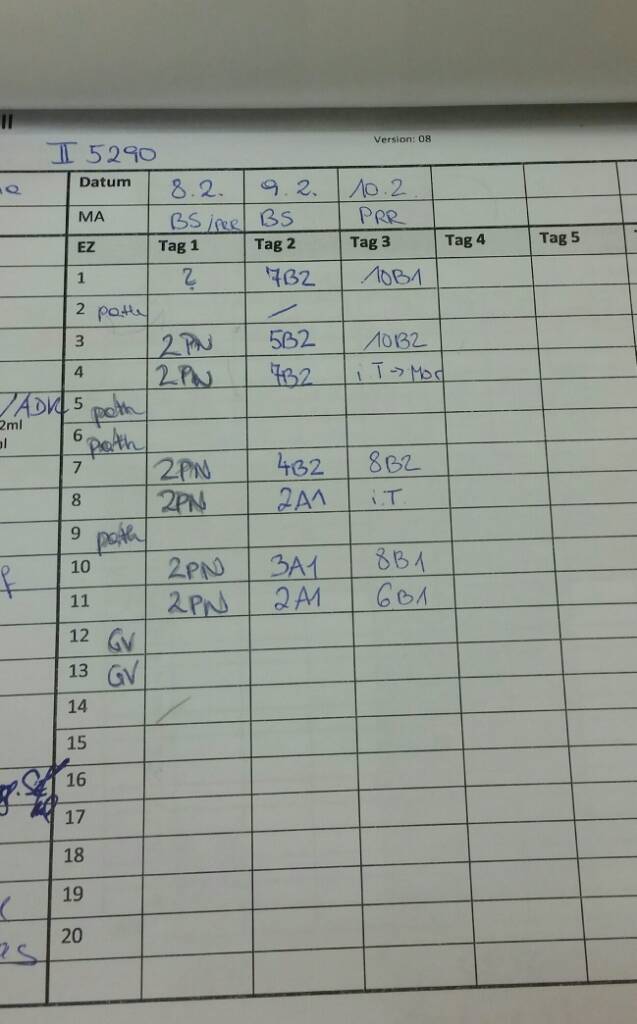 II
II 5290
Version: 08
Datum 8.2. 9.2. 10.2.
MA BS/PRR BS PRR
EZ Tag 1 Tag 2 Tag 3 Tag 4 Tag 5
1 ? 7B2 10B1
2 path /
3 2PN 5B2 10B2
4 2PN 7B2 i.T→Mor
/ADK 5 path
2ml
6 path
7 2PN 4B2 8B2
8 2PN 2A1 i.T.
9 path
10 2PN 3A1 8B1
11 2PN 2A1 6B1
12 GV
13 GV
14
15
16
17
18
19
20